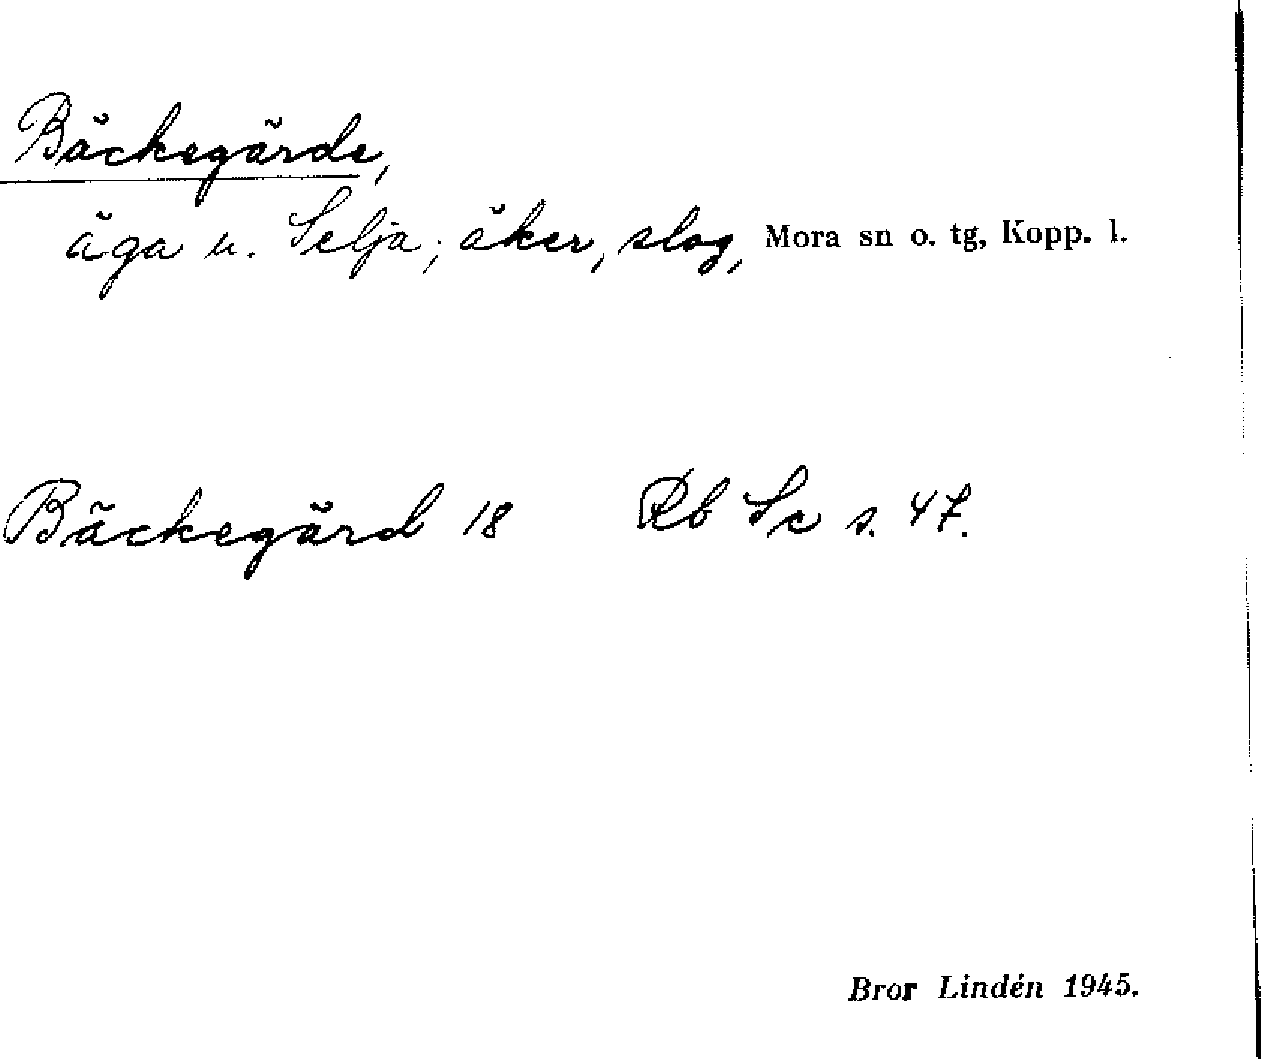 Bäckegärde,
äga u. Selja; åker, slog, Mora sn o. tg, Kopp. l.
Bäckegärd 18 Rb Sc s. 47.
Bror Lindén 1945.